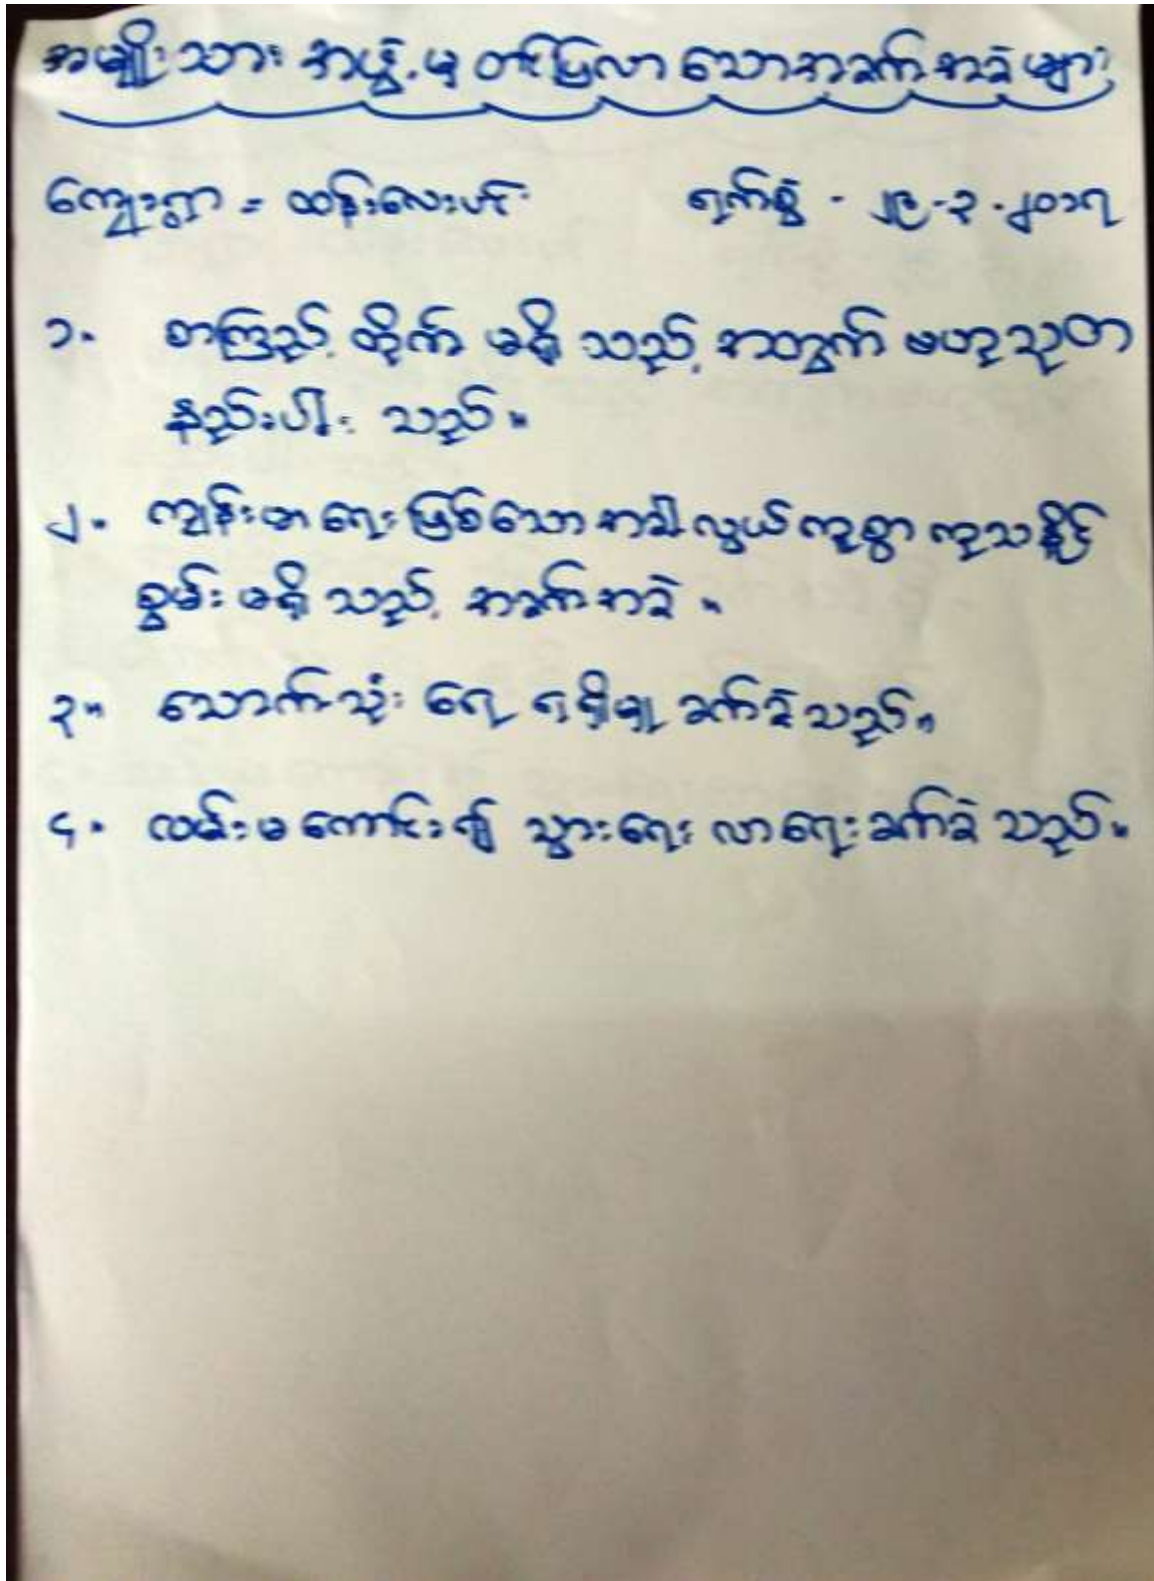 အမျိုးသား အဖွဲ့မှ တင်ပြလာသောအခက်အခဲများ
ကျေးရွာ = ထန်းလေးပင် ရက်စွဲ - ၂၉-၃-၂၀၁၇
၁။ စာကြည့်တိုက် မရှိသည့်အတွက် ဗဟုသုတ
နည်းပါးသည်။
၂။ ကျန်းမာရေးဖြစ်သောအခါ လွယ်ကူစွာ ကုသနိုင်
စွမ်း မရှိသည့် အခက်အခဲ။
၃။ သောက်သုံးရေ ရရှိမှု ခက်ခဲသည်။
၄။ လမ်းမကောင်း၍ သွားရေးလာရေးခက်ခဲသည်။